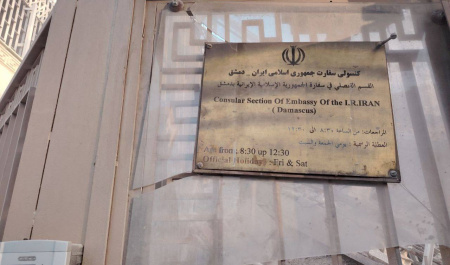 کنسولی سفارت جمهوری اسلامی ایران - دمشق
القسم القنصلي في سفارة الجمهورية الإسلامية الإيرانية بدمشق
Consular Section Of Embassy Of the I.R.IRAN
( Damascus)
المراجعات: من الساعة ٨:٣٠ الى ١٢:٣٠
العطلة الرسمية: يومي الجمعة والسبت
: 8:30 up 12:30
Official Holiday: Fri & Sat